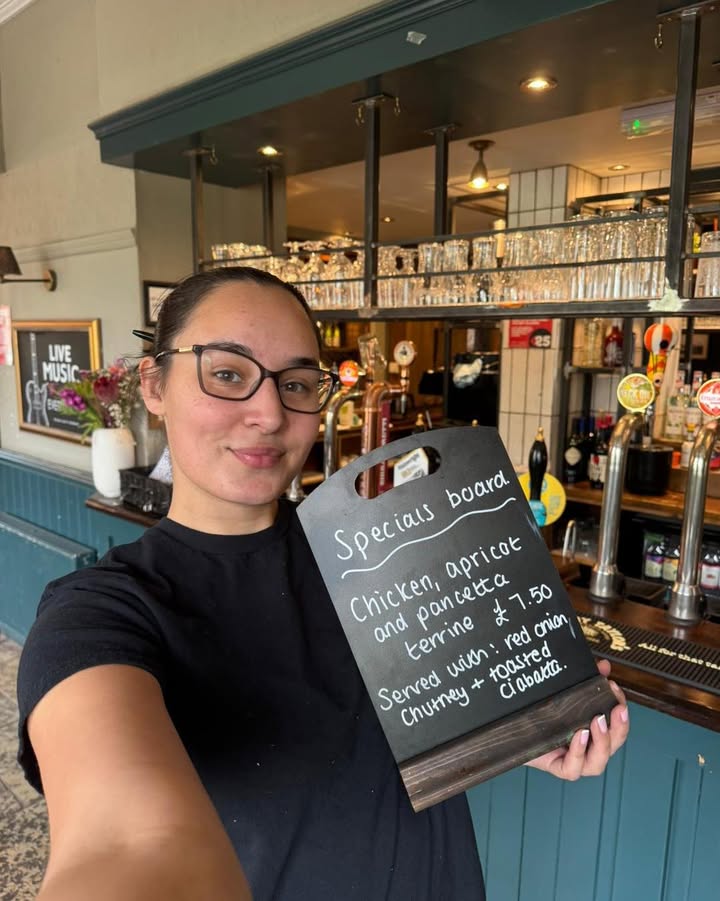 LIVE
MUSIC
25
Specials board
Chicken, apricot
and pancetta
terrine £7.50
Served with: red onion
Chutney + toasted
Ciabatta.
All for that